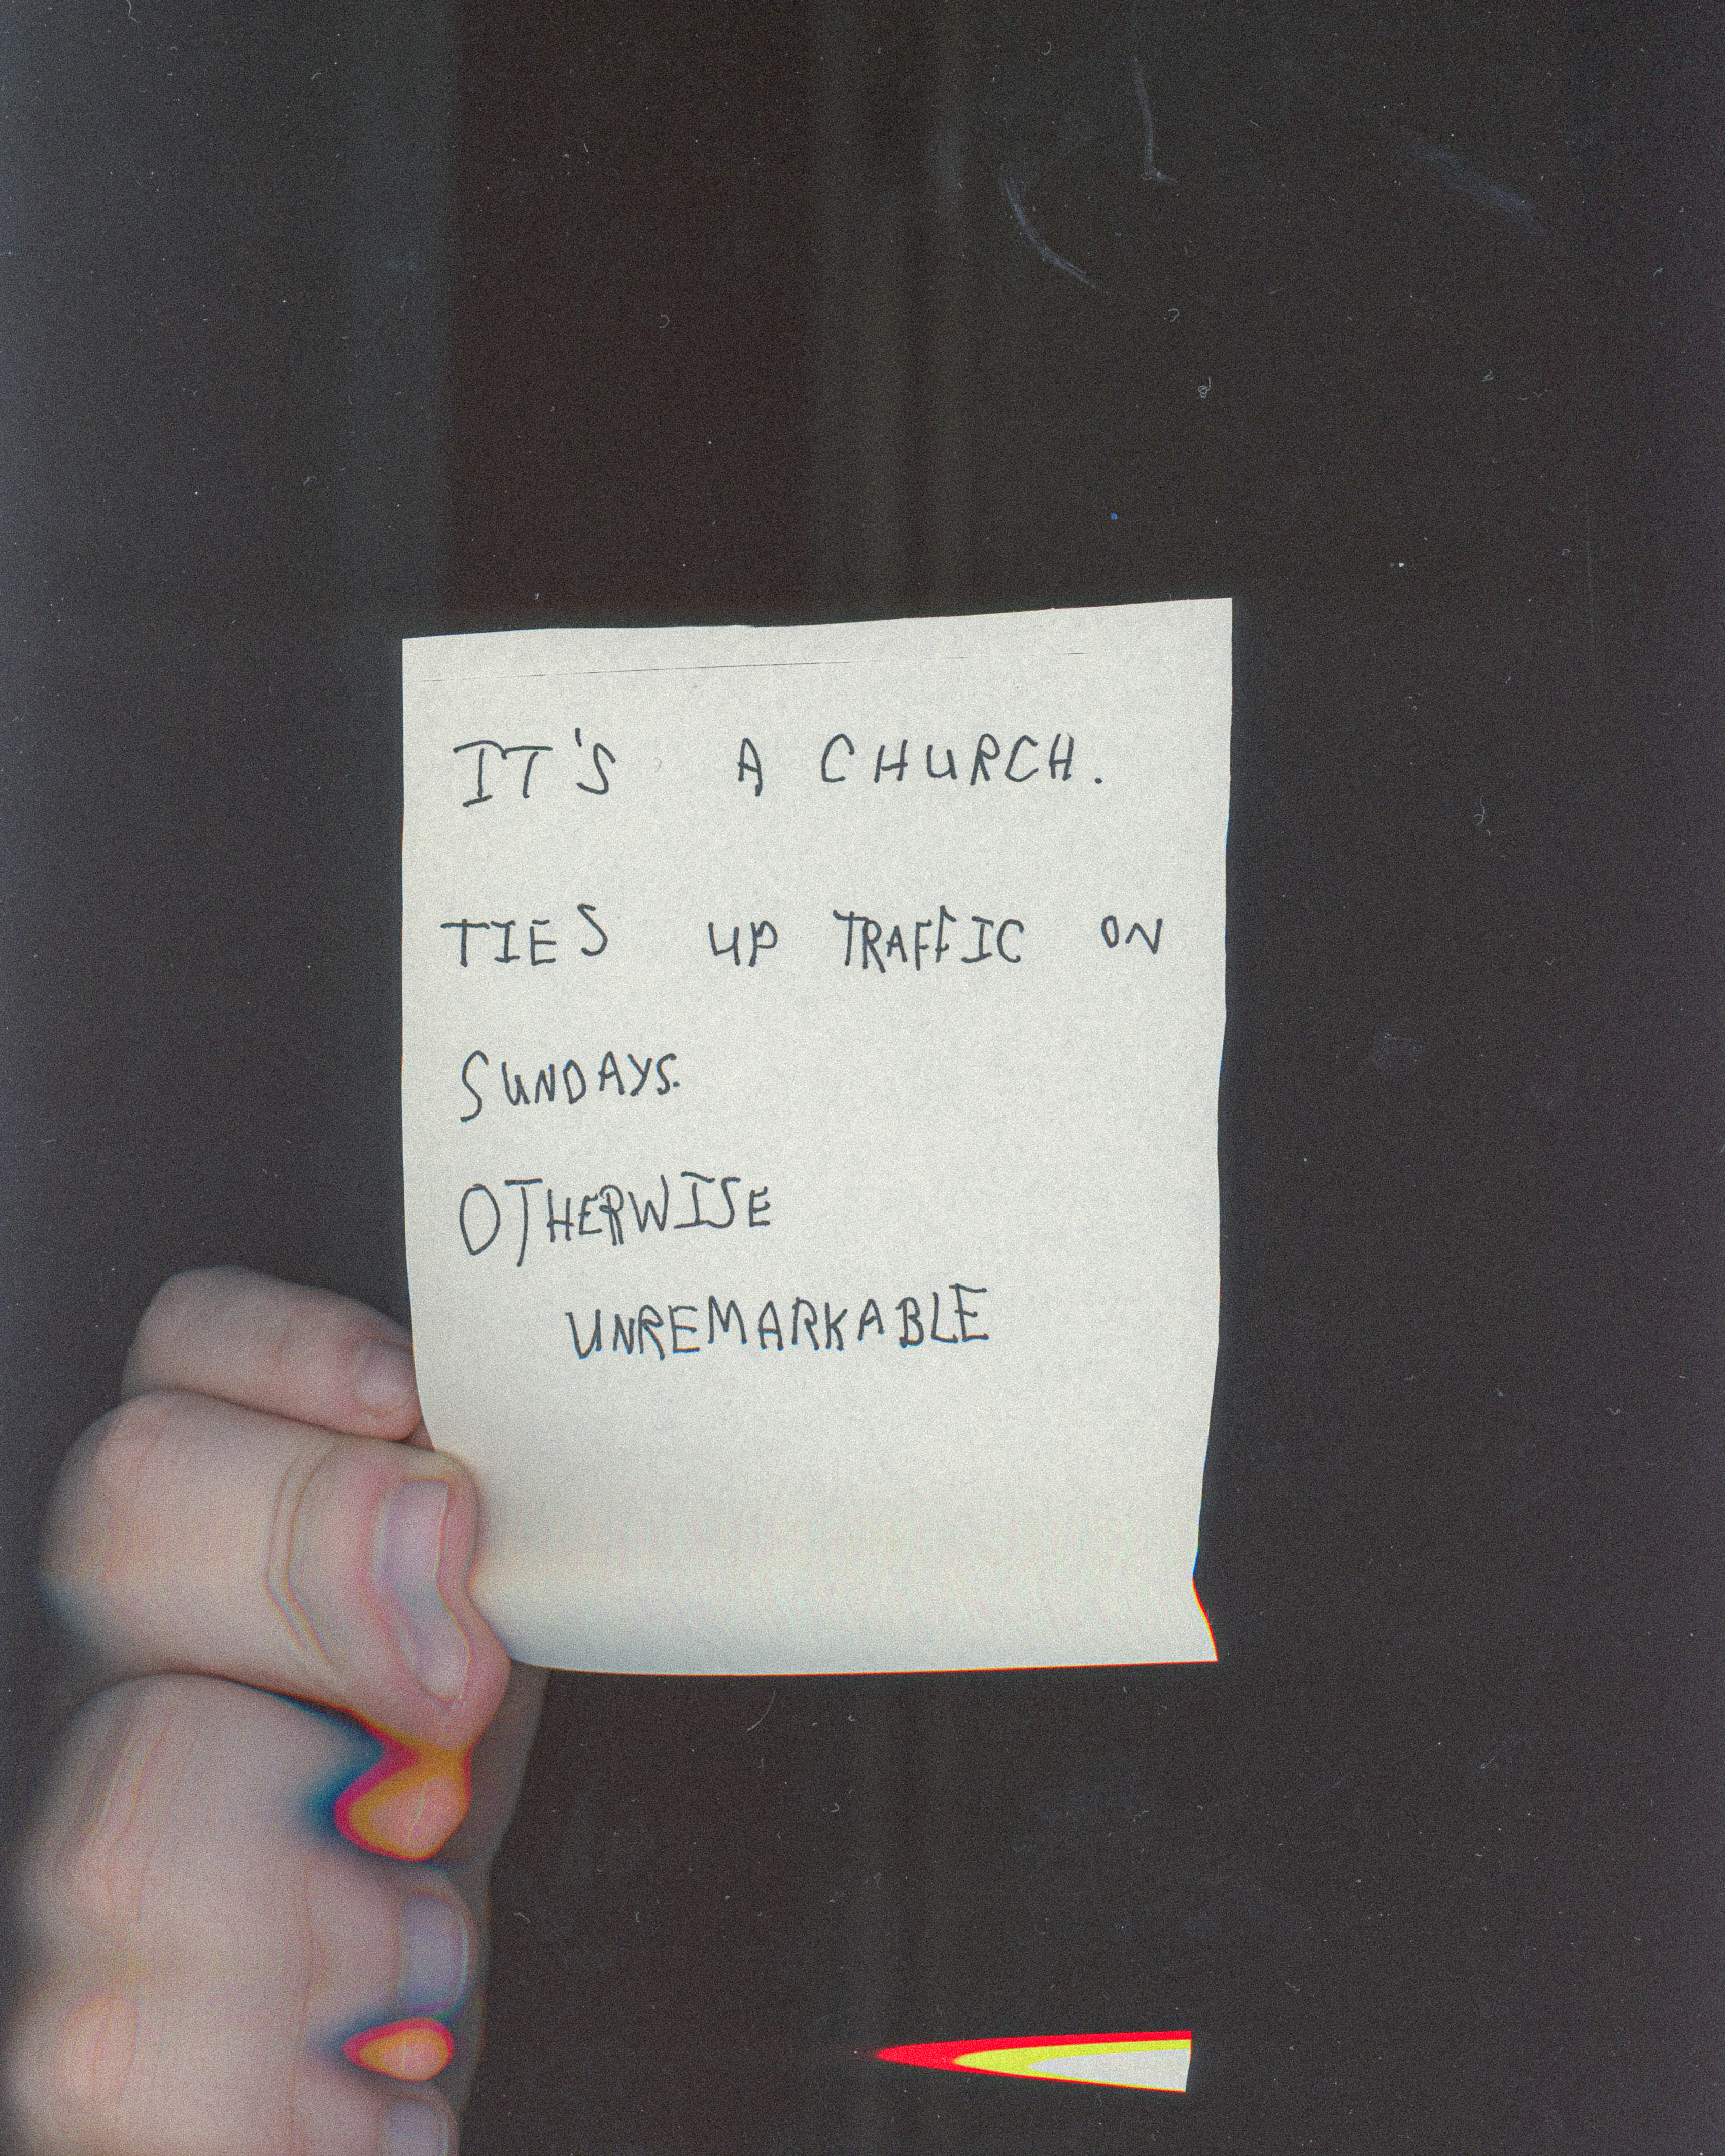 IT'S A CHURCH.
TIES UP TRAFFIC ON
SUNDAYS.
OTHERWISE
UNREMARKABLE